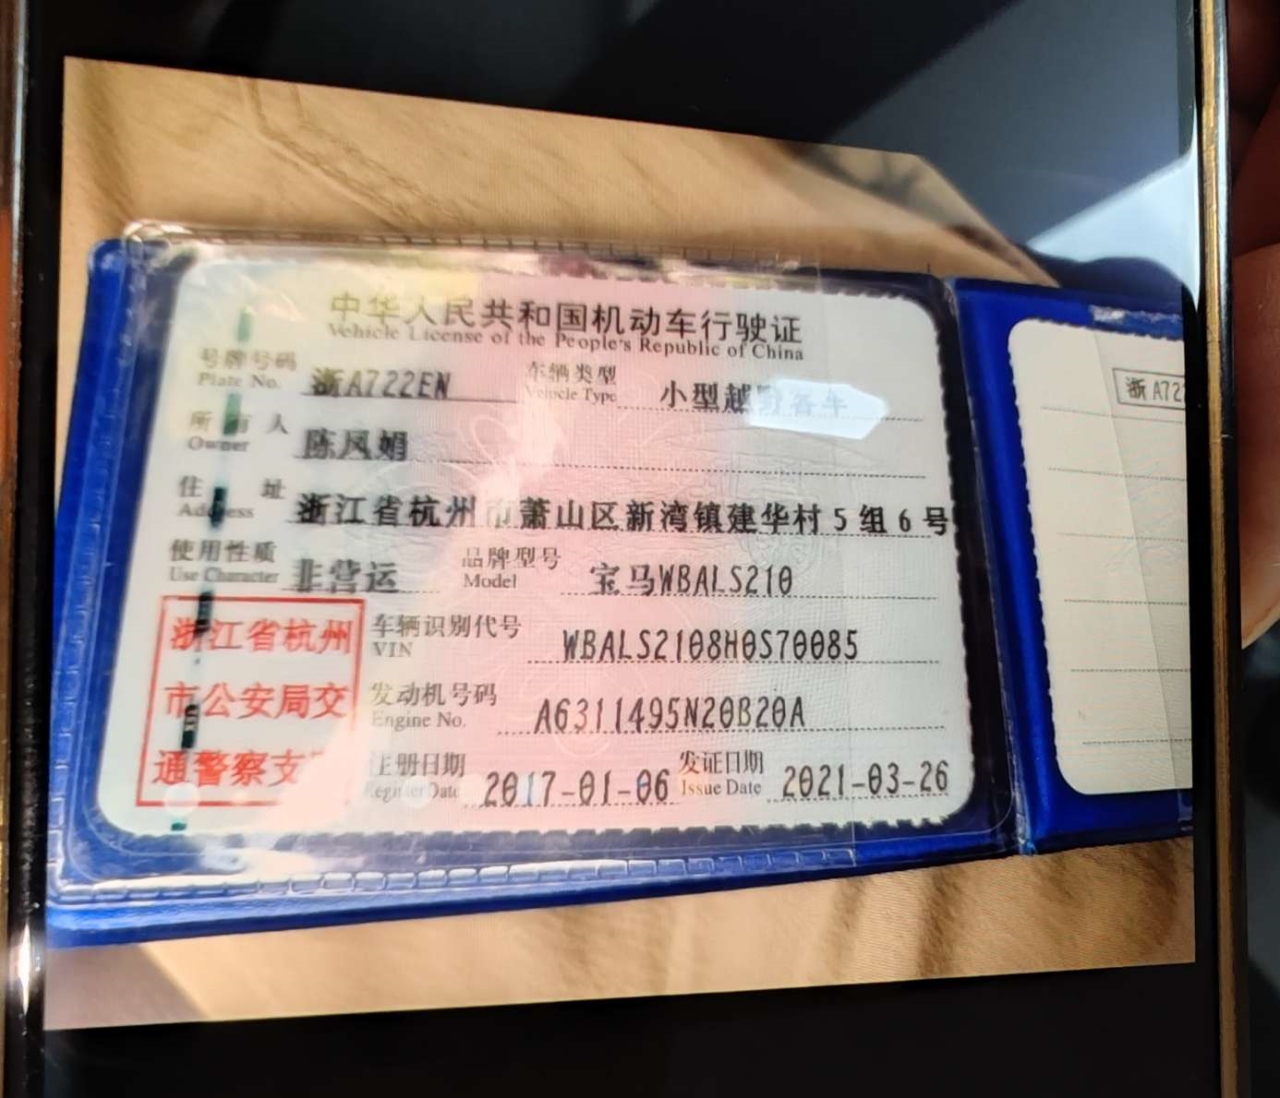 中华人民共和国机动车行驶证
Vehicle License of the People's Republic of China
号牌号码 浙A722EN 车辆类型 小型越野客车
Plate No. Vehicle Type
所有人 陈凤娟
Owner
住址 浙江省杭州市萧山区新湾镇建华村5组6号
Address
使用性质 非营运 品牌型号 宝马WBALS210
Use Character Model
浙江省杭州
市公安局交
通警察支
车辆识别代号 WBALS2108H0S70085
VIN
发动机号码 A6311495N20B20A
Engine No.
注册日期 2017-01-06 发证日期 2021-03-26
Register Date Issue Date
浙A72